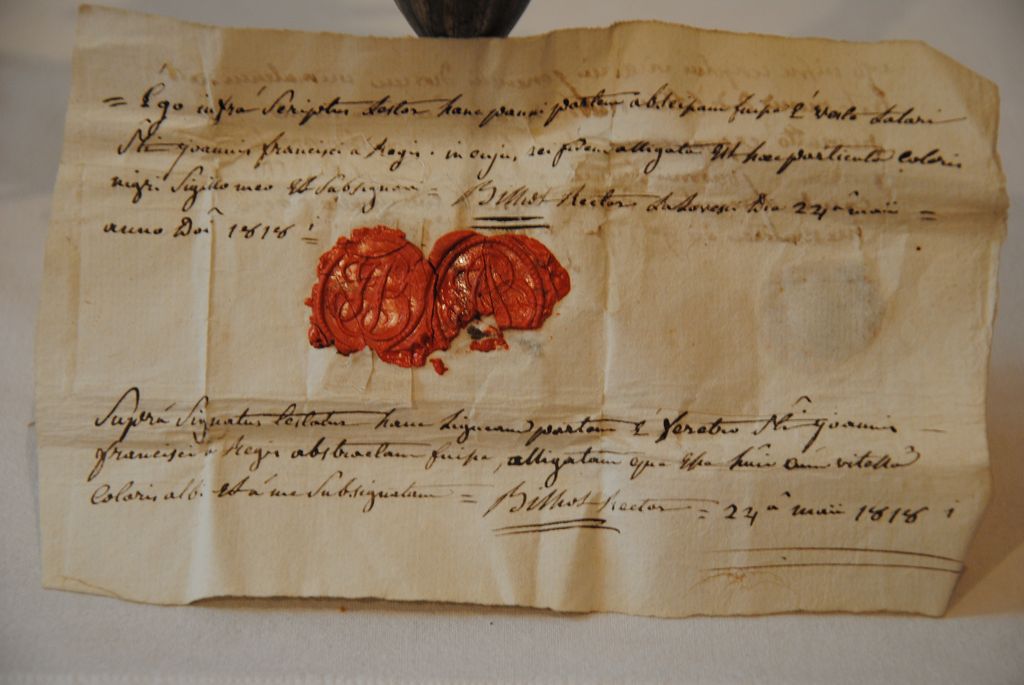 = Ego infrá Scriptus testor hanc panni partem abscissam fuisse é veste talari
Sti. joannis francisci á Regis. in cujus rei fidem alligata est haec particula coloris
nigri Sigillo meo et Subsignavi = Bilhot Rector Lalovesci Die 24â maii =
anno Doî 1818 =
JB R
Suprá Signatus testatur hanc ligneam partem é feretro Sti joannis
francisci á Regis abstractam fuisse, alligatam que esse huic cum vitellâ
coloris albi et á me Subsignatam = Bilhot Rector = 24â maii 1818